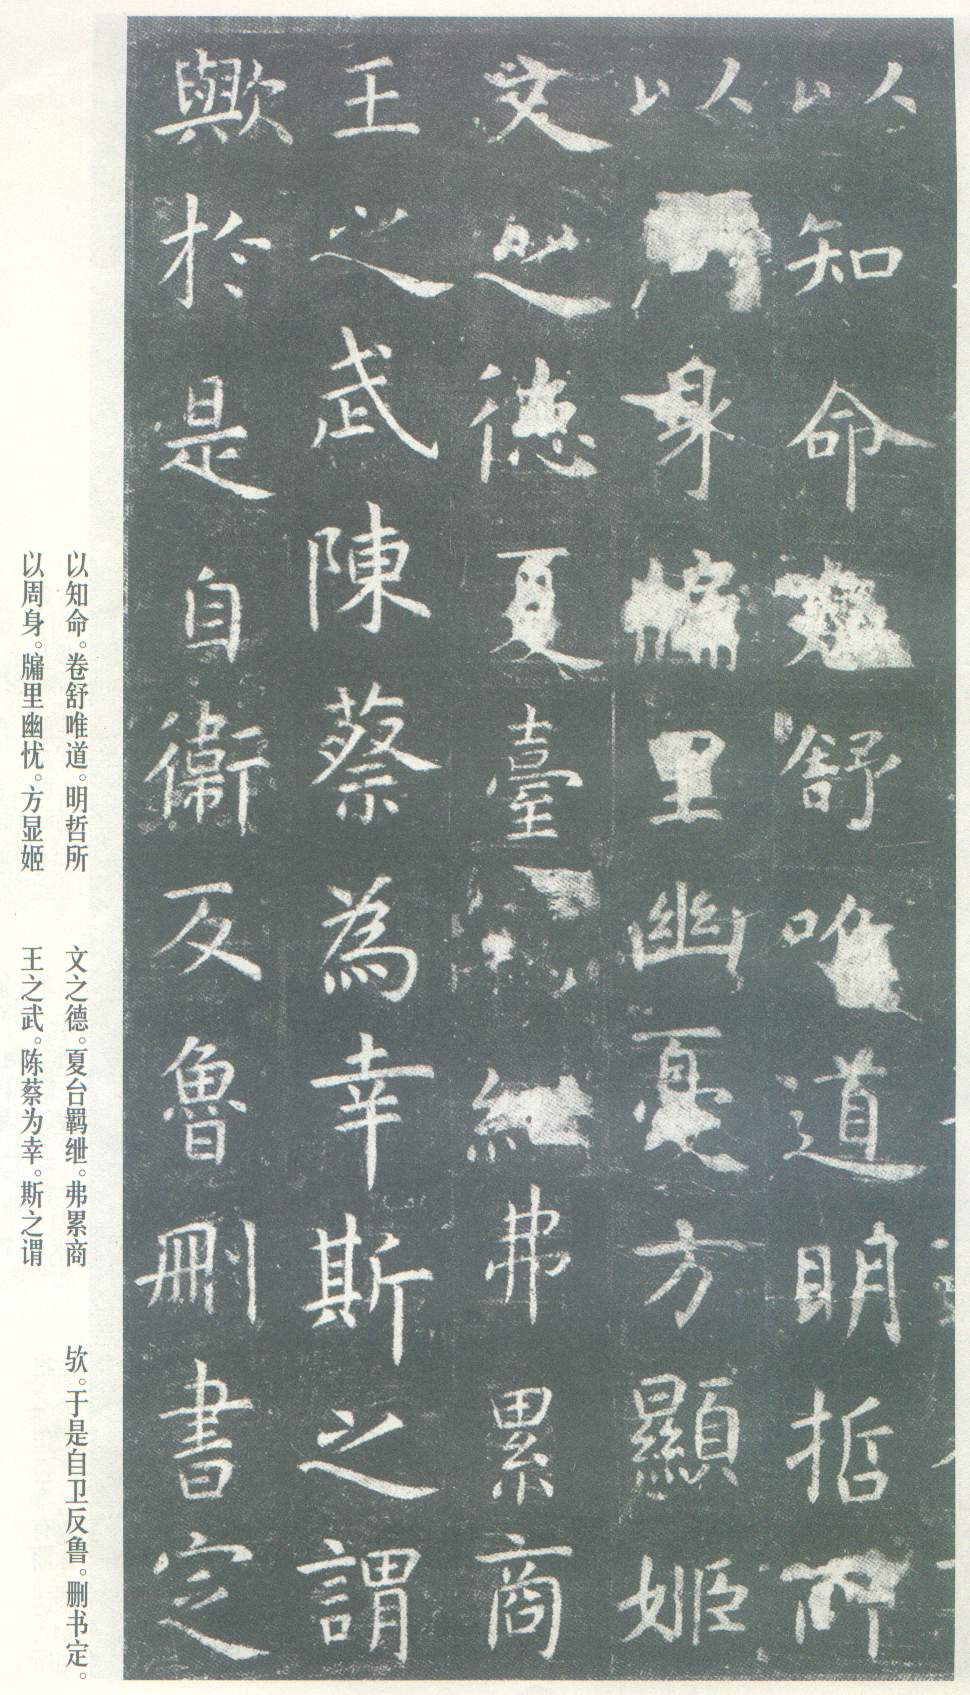 以知命卷舒唯道明哲所
以周身牖里幽憂方顯姬
文之德夏臺紲弗累商
王之武陳蔡為幸斯之謂
歟於是自衛反魯刪書定
以知命。卷舒唯道。明哲所
以周身。牖里幽忧。方显姬
文之德。夏台羁绁。弗累商
王之武。陈蔡为幸。斯之谓
欤。于是自卫反鲁。删书定。